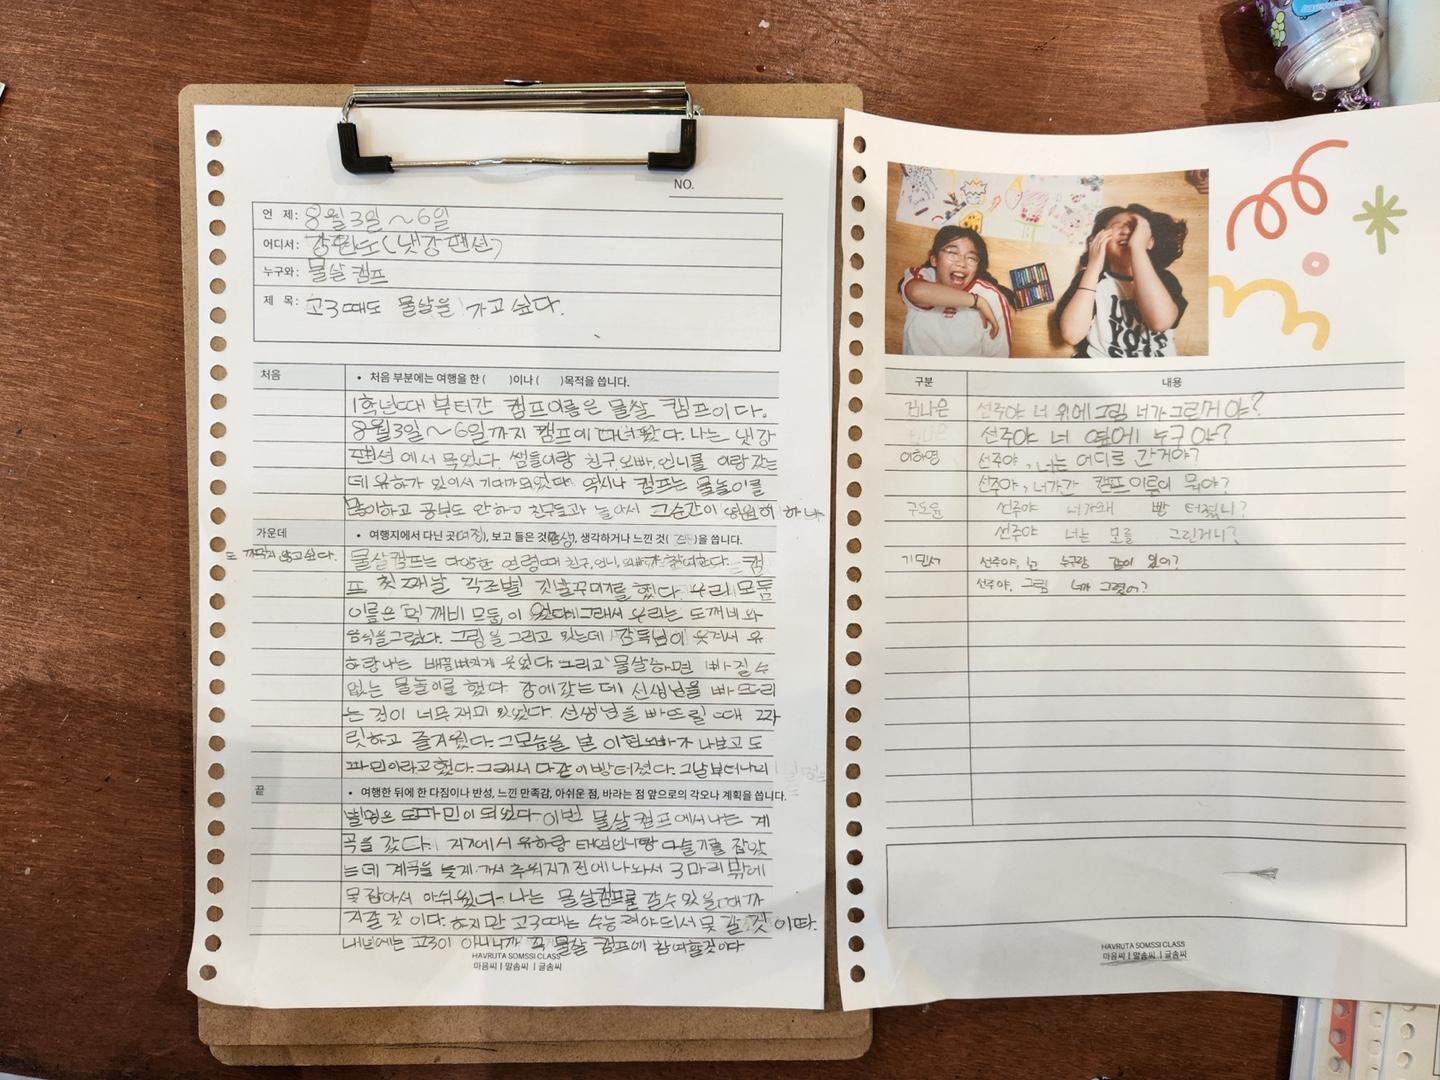 NO.
언 제: 8월3일~6일
어디서: 강원도(냇강펜션)
누구와: 물살 캠프
제 목: 고3때도 물살을 가고 싶다.
처음
• 처음 부분에는 여행을 한 ( )이나 ( )목적을 씁니다.
1학년때 부터간 캠프이름은 물살 캠프이다.
8월3일~6일까지 캠프에 다녀왔다. 나는 냇강
펜션에서 묵었다. 쌤들이랑 친구,오빠,언니를 이랑 갔는
데 유하가 있어서 기대가되었다. 역시나 캠프는 물놀이를
많이하고 공부도 안하고 친구들과 놀아서 그순간이 영원히 하나
가운데
• 여행지에서 다닌 곳(여정), 보고 들은 것(), 생각하거나 느낀 것()을 씁니다.
도 까먹지 않고싶다.
물살캠프는 다양한 연령때 친구,언니,오빠가 참여한다. 캠
프 첫 째날 각조별 깃발꾸미기를 했다. 우리 모둠
이름은 먹 깨비 모둠이 었다. 그래서 우리는 도깨비와
음식을그렸다. 그림을 그리고 있는데 감독님이 웃겨서 유
하랑나는 배꼽빠지게 웃었다. 그리고 물살하면 빠질 수
없는 물놀이를 했다. 강에갔는데 선생님을 빠뜨리
는 것이 너무재미 있었다. 선생님을 빠뜨릴 때 짜
릿하고 즐거웠다. 그모습을 본 이현오빠가 나보고 도
파민이라고했다. 그래서 다같이빵터졌다. 그날부터나의
끝
• 여행한 뒤에 한 다짐이나 반성, 느낀 만족감, 아쉬운 점, 바라는 점 앞으로의 각오나 계획을 씁니다.
별명은 도파민이 되었다. 이번 물살캠프에서나는 계
곡을 갔다. 거기에서 유하랑 태연언니랑 다슬기를 잡았
는데 계곡을 늦게 가서 추워지기전에나와서 3마리밖에
못 잡아서 아쉬웠다. 나는 물살캠프를 갈수있을때까
지갈 것 이다. 하지만 고3때는 수능 려야되서 못 갈 것 이다.
내년에는 고3이 아니니까 꼭 물살 캠프에 참여할것이다
HAVRUTA SOMSSI CLASS
마음씨 | 말솜씨 | 글솜씨
구분 내용
김나은 선주야 너 위에그림 너가그린거야?
선주야 너 옆에 누구야?
이하영 선주야, 너는 어디로 간거야?
선주야, 너가간 캠프이름이 뭐야?
구도윤 선주야 너가왜 빵 터졌니?
선주야 너는 모를 그린거니?
기민서 선주야, 누구랑 같이 있어?
선주야, 그림 너가 그렸어?
HAVRUTA SOMSSI CLASS
마음씨 | 말솜씨 | 글솜씨